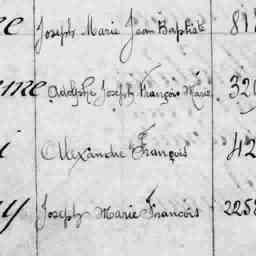 Joseph Marie Jean Baptiste 81
me Adolphe Joseph François Marie 320
i Alexandre François 42
y Joseph Marie Francois 2258